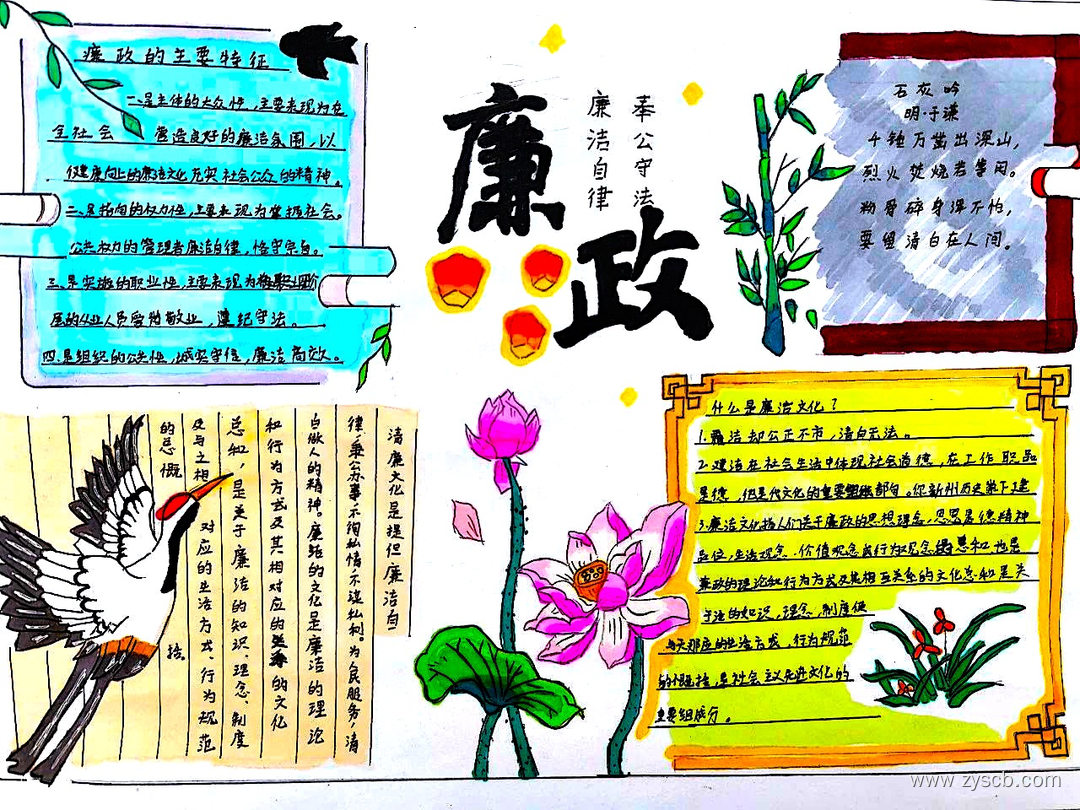 廉政的主要特征
一是主体的大众性，主要表现为在
全社会 营造良好的廉洁氛围，以
健康向上的廉洁文化充实社会公众的精神。
二是指向的权力性，主要表现为掌握社会。
公共权力的管理者廉洁自律，恪守宗旨。
三是实施的职业性，主要表现为
的从业人员爱岗敬业，遵纪守法。
四是组织的公共性，诚实守信，廉洁高效。
廉政
奉公守法
廉洁自律
石灰吟
明·于谦
千锤万凿出深山，
烈火焚烧若等闲。
粉骨碎身浑不怕，
要留清白在人间。
清廉文化是提但廉洁自
律，秉公办事，不徇私情，不谋私利。为人民服务，清
白做人的精神。廉洁的文化是廉洁的理论
和行为方式及其相对应的 的文化
总和，是关于廉洁的知识、理念、制度
及与之相 对应的生活方式、行为规范
的总概 括。
什么是廉洁文化？
1.廉洁却公正不市，清白无法。
2.建洁在社会生活中体现社会道德，在工作职品
是德，但是代文化的重要组成部句。
3.廉洁文化指人们关于廉政的思想理念，思思是德精神
品位，生活观念、价值观念 行为观念 和 也是
廉政的理论和行为方式及其相互关系的文化总和是关
于洁的知识，理念、制度使
的生活方式，行为规范
的概括，是社会主义先进文化的
重要组成分。
www.zyscb.com